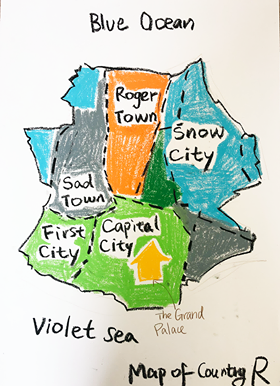 Blue Ocean
Roger
Town
Snow
City
Sad
Town
First
City
Capital
City
The Grand
Palace
Violet Sea
Map of Country R